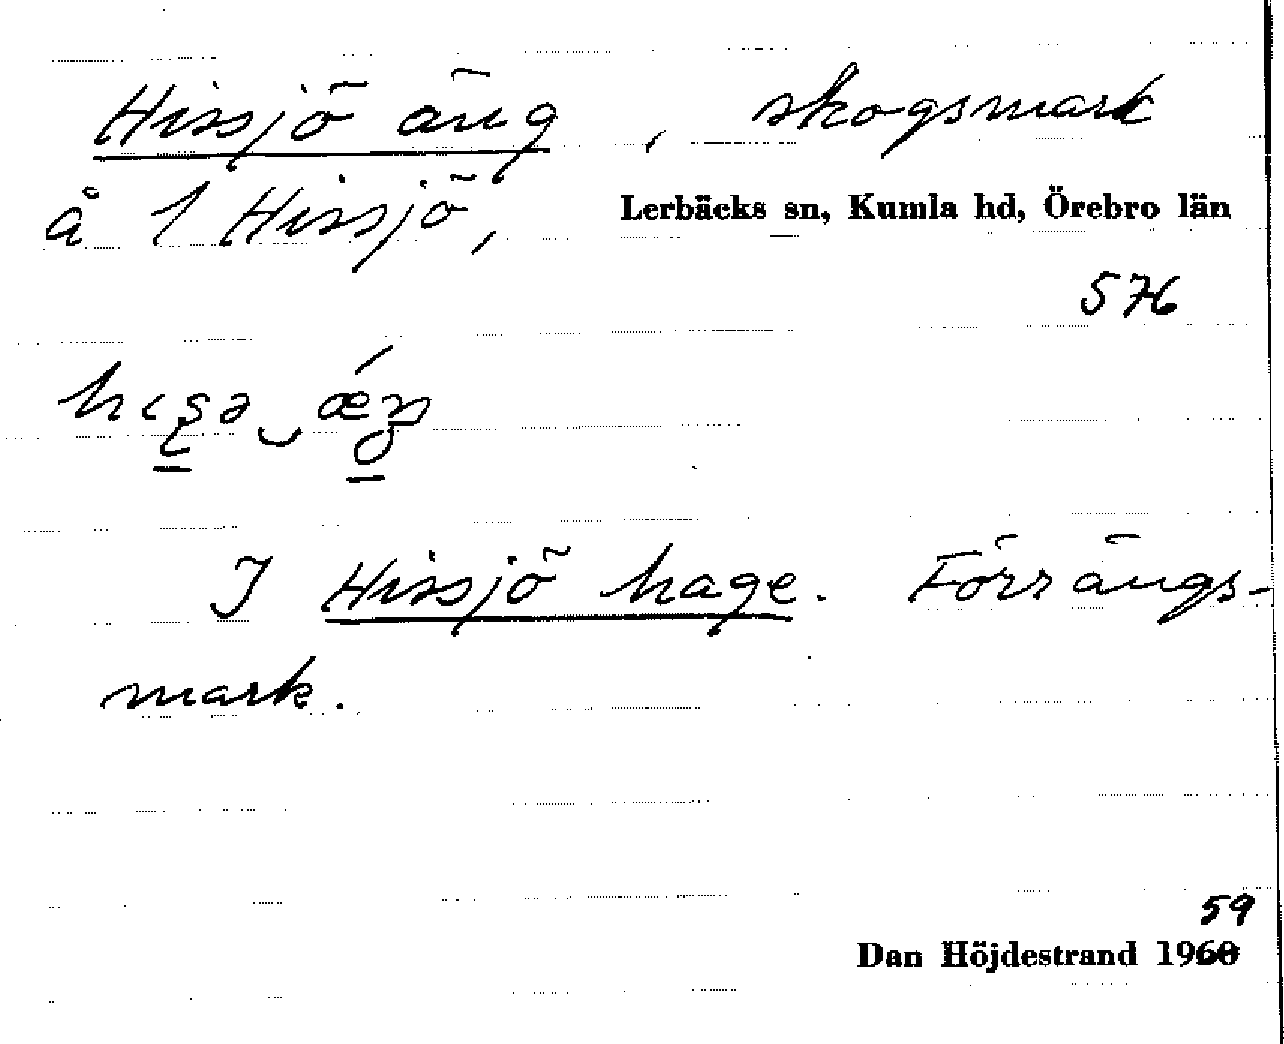 Hissjö äng, skogsmark
å 1 Hissjö, Lerbäcks sn, Kumla hd, Örebro län
576
I Hissjö hage. Förr ängs-
mark.
59
Dan Höjdestrand 1960